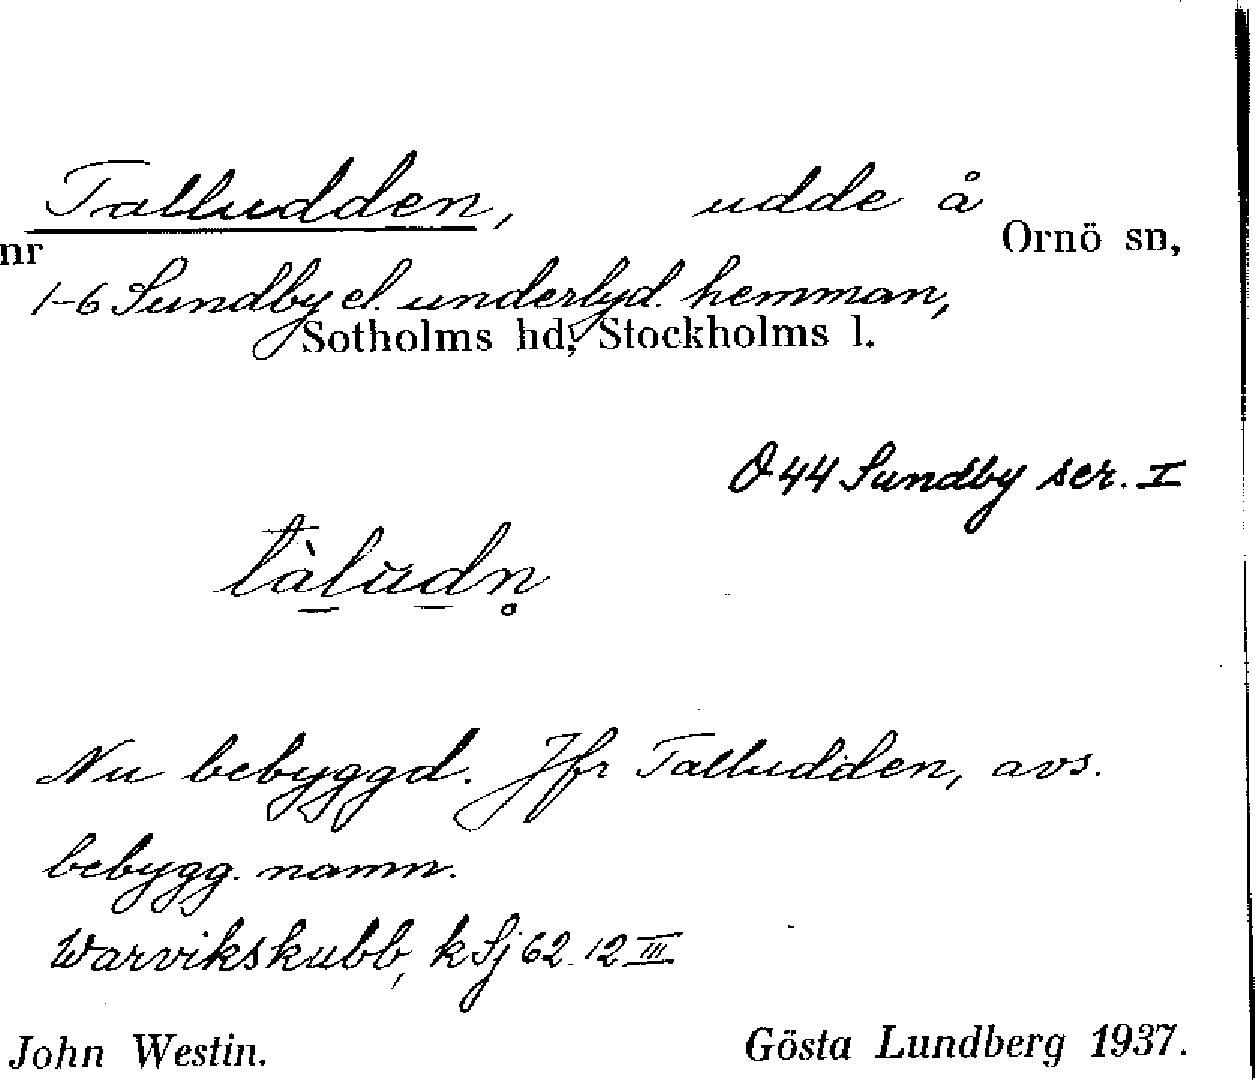 Talludden, udde å
Ornö sn,
nr
1-6 Sundby el. underlyd. hemman,
Sotholms hd, Stockholms l.
Ö 44 Sundby ser. I
tàlŭdn̥
Nu bebyggd. Jfr Talludden, avs.
bebygg. namn.
Warvikskubb, k Sj 62.12 III
John Westin. Gösta Lundberg 1937.